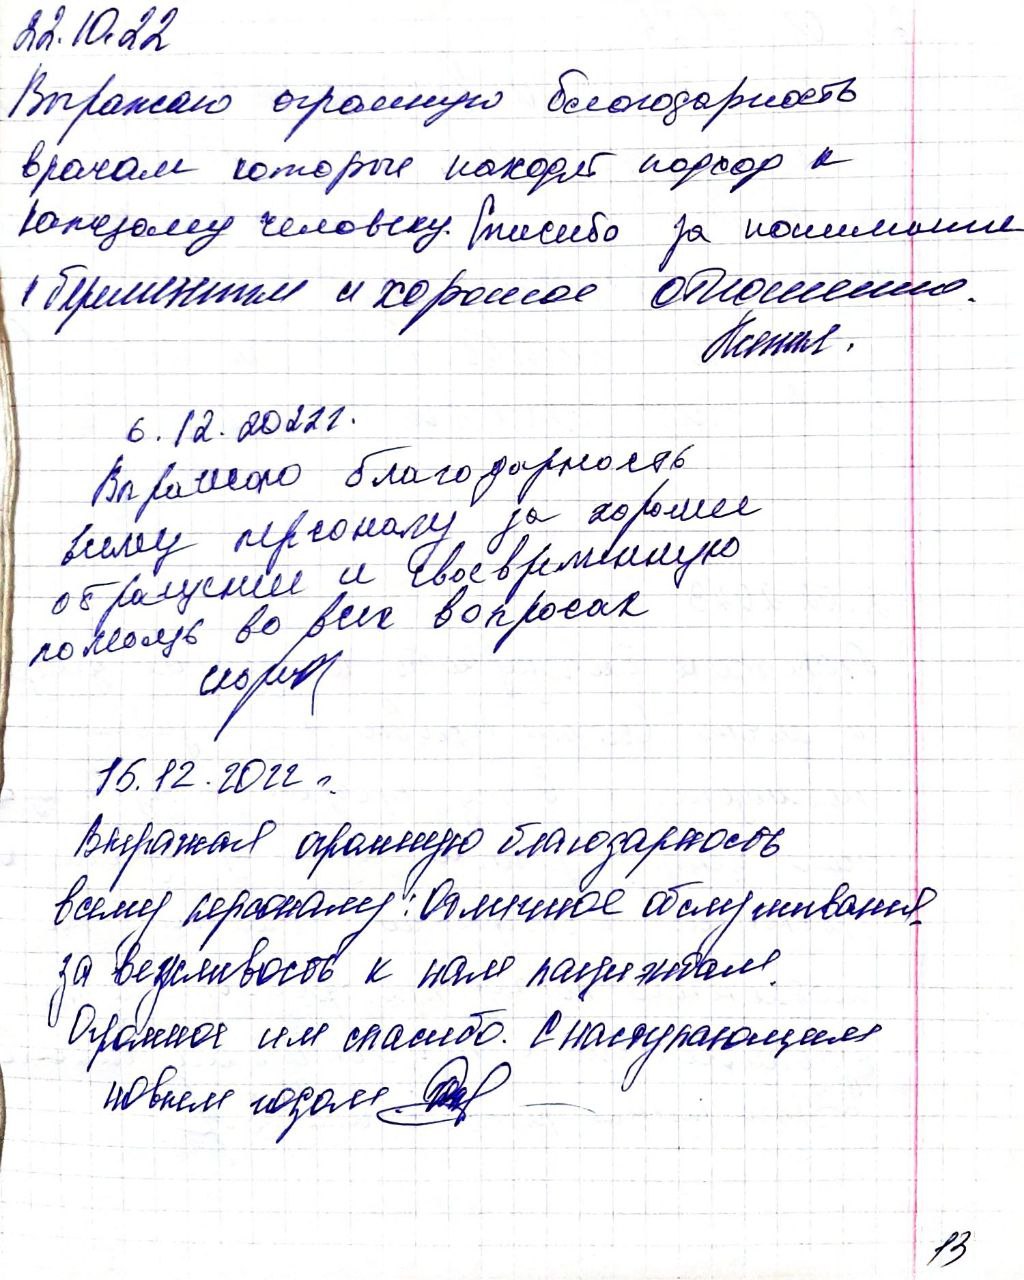 22.10.22
Выражаю огромную благодарность
врачам которые находят подход к
каждому человеку. Спасибо за понимание
к беременным и хорошое отношению.
Ксения.
6.12.2022г.
Выражаю благодарность
всему персоналу за хорошее
обращение и своевременную
помощь во всех вопросах
15.12.2022 г.
Выражая огромную благодарность
всему персоналу: Отличное обслуживания
за вежливость к нам пациентам.
Огромное им спасибо. С наступающим
новым годом
13